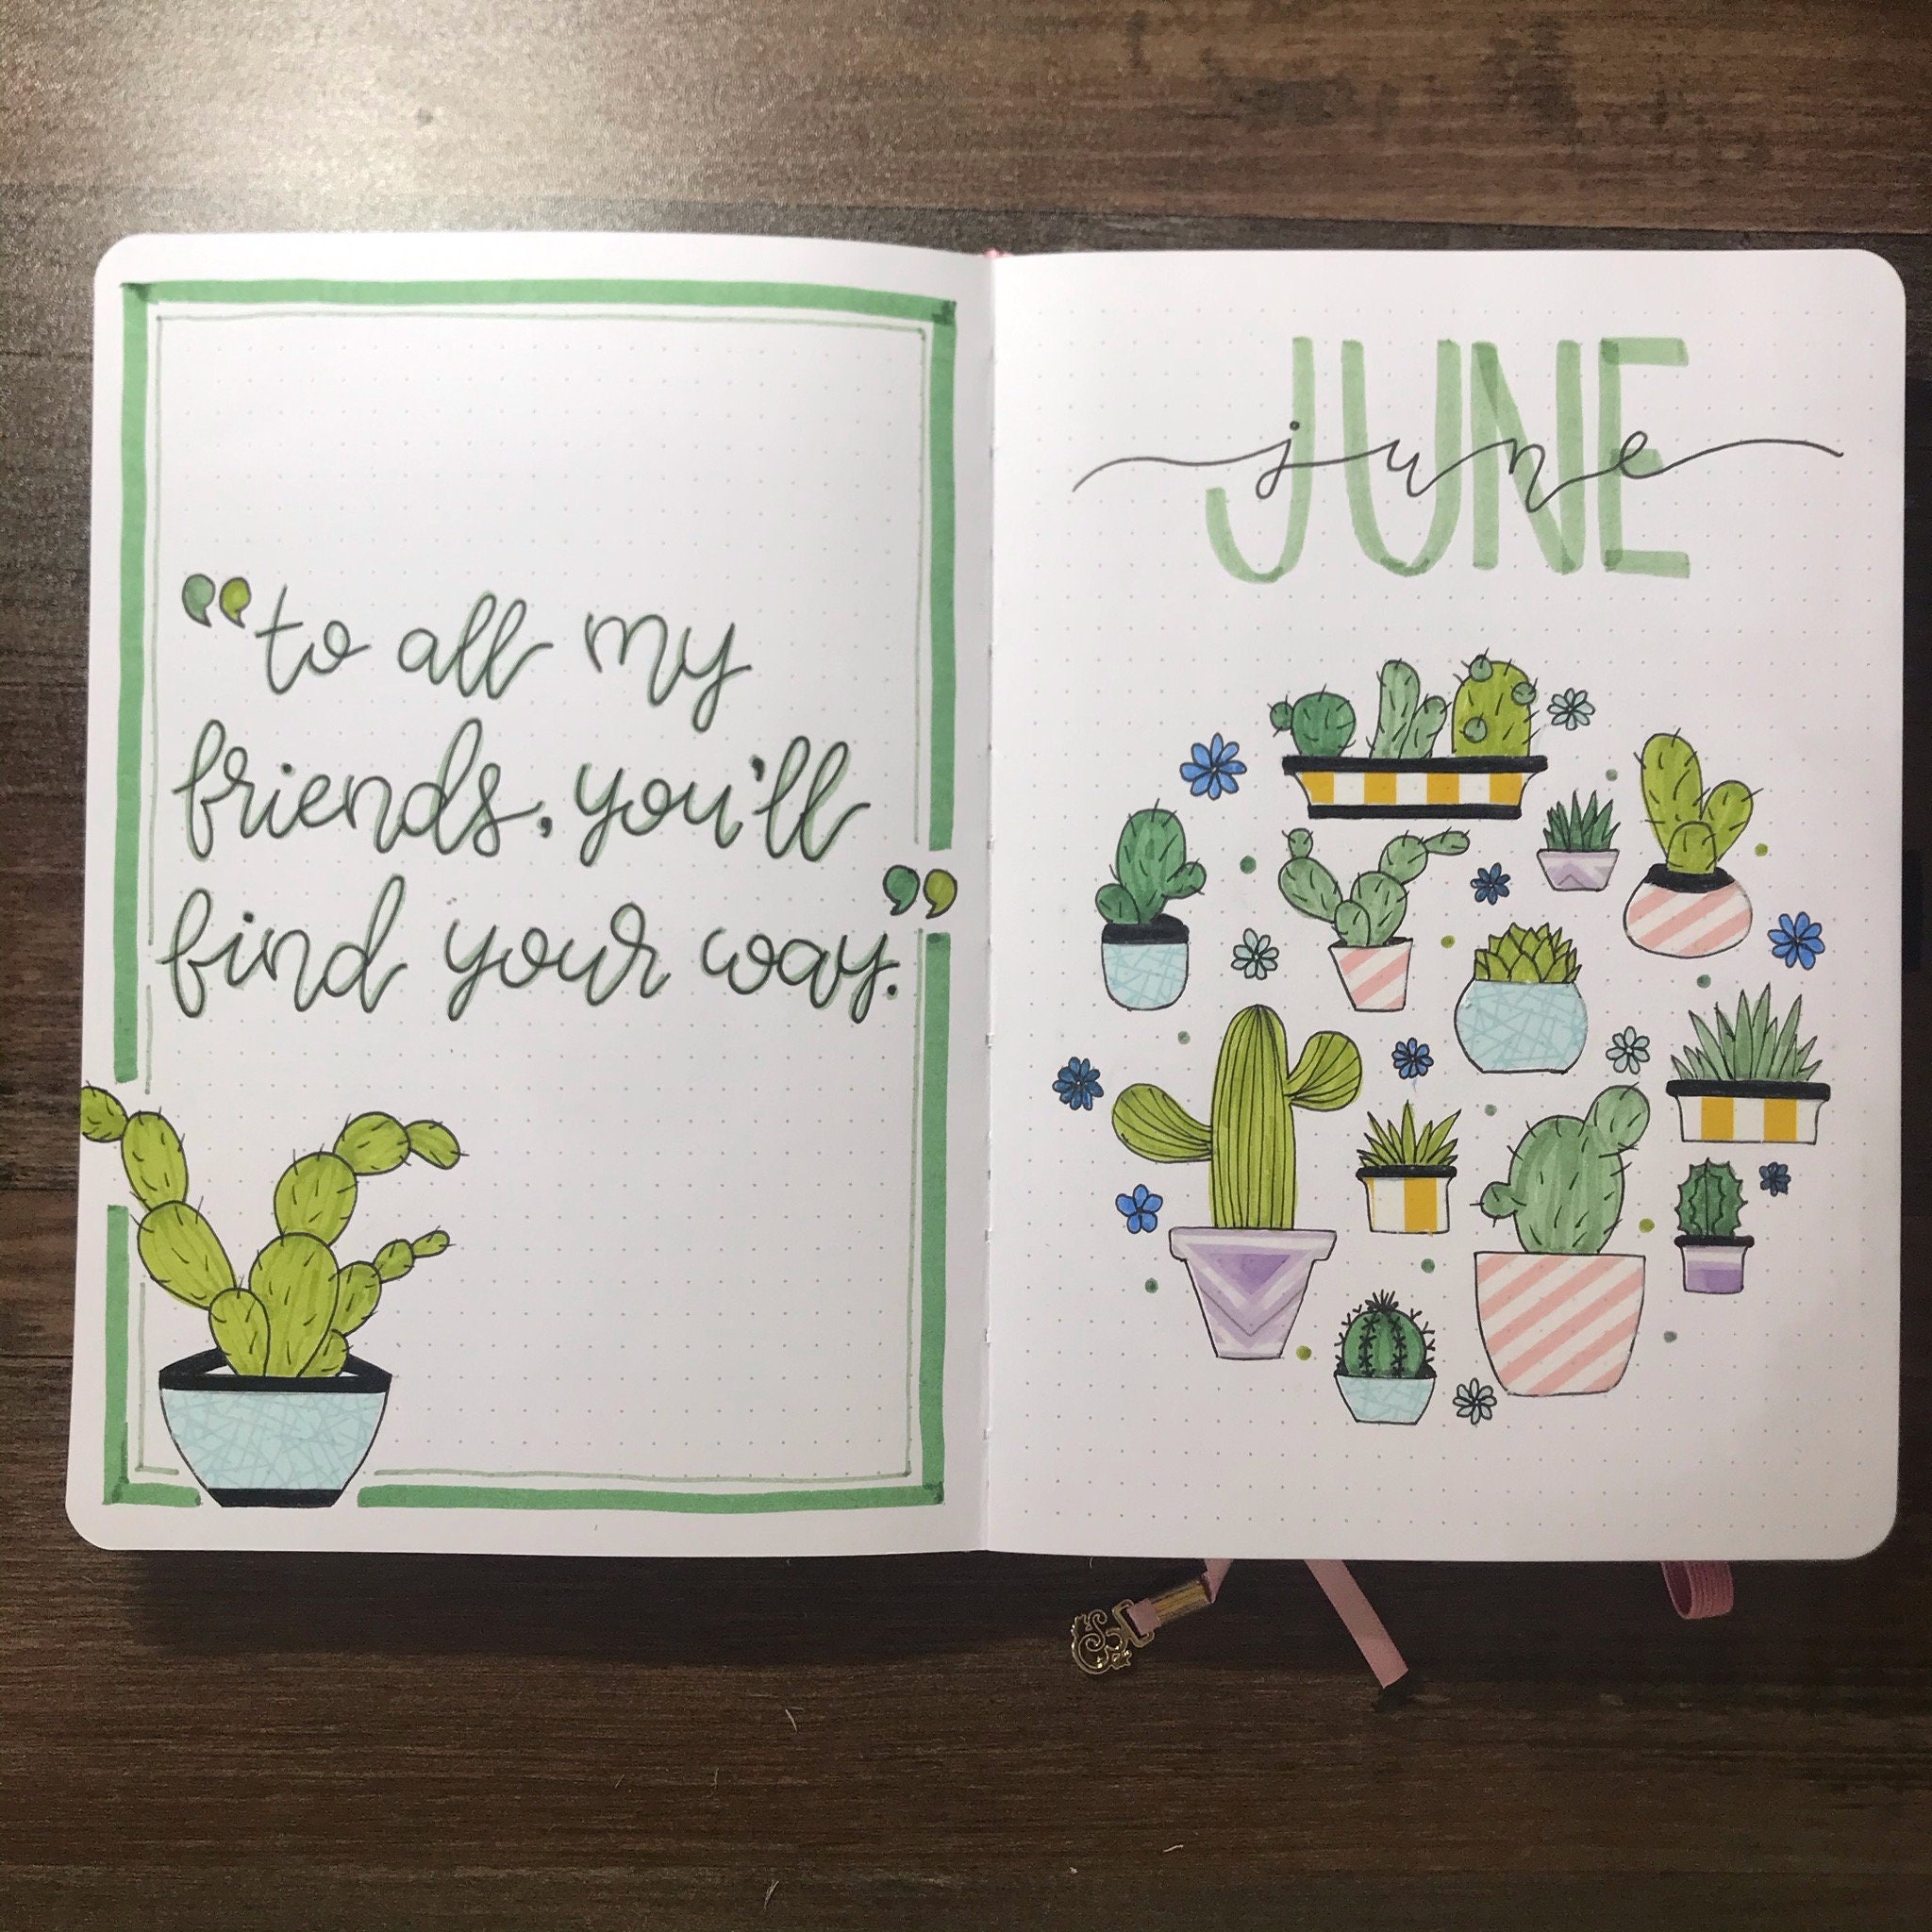 “to all my
friends, you'll
find your way.”
JUNE
june